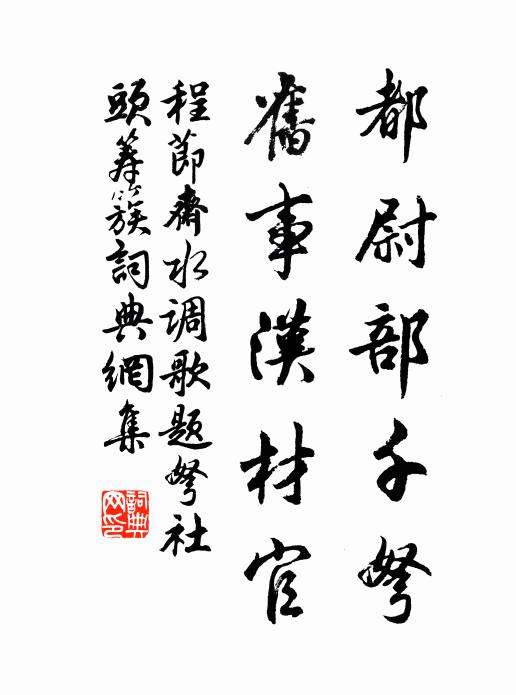 都尉部千弩
舊事漢材官
程節齋水调歌题弩社
頭筹簇詞典網集
詞典网印